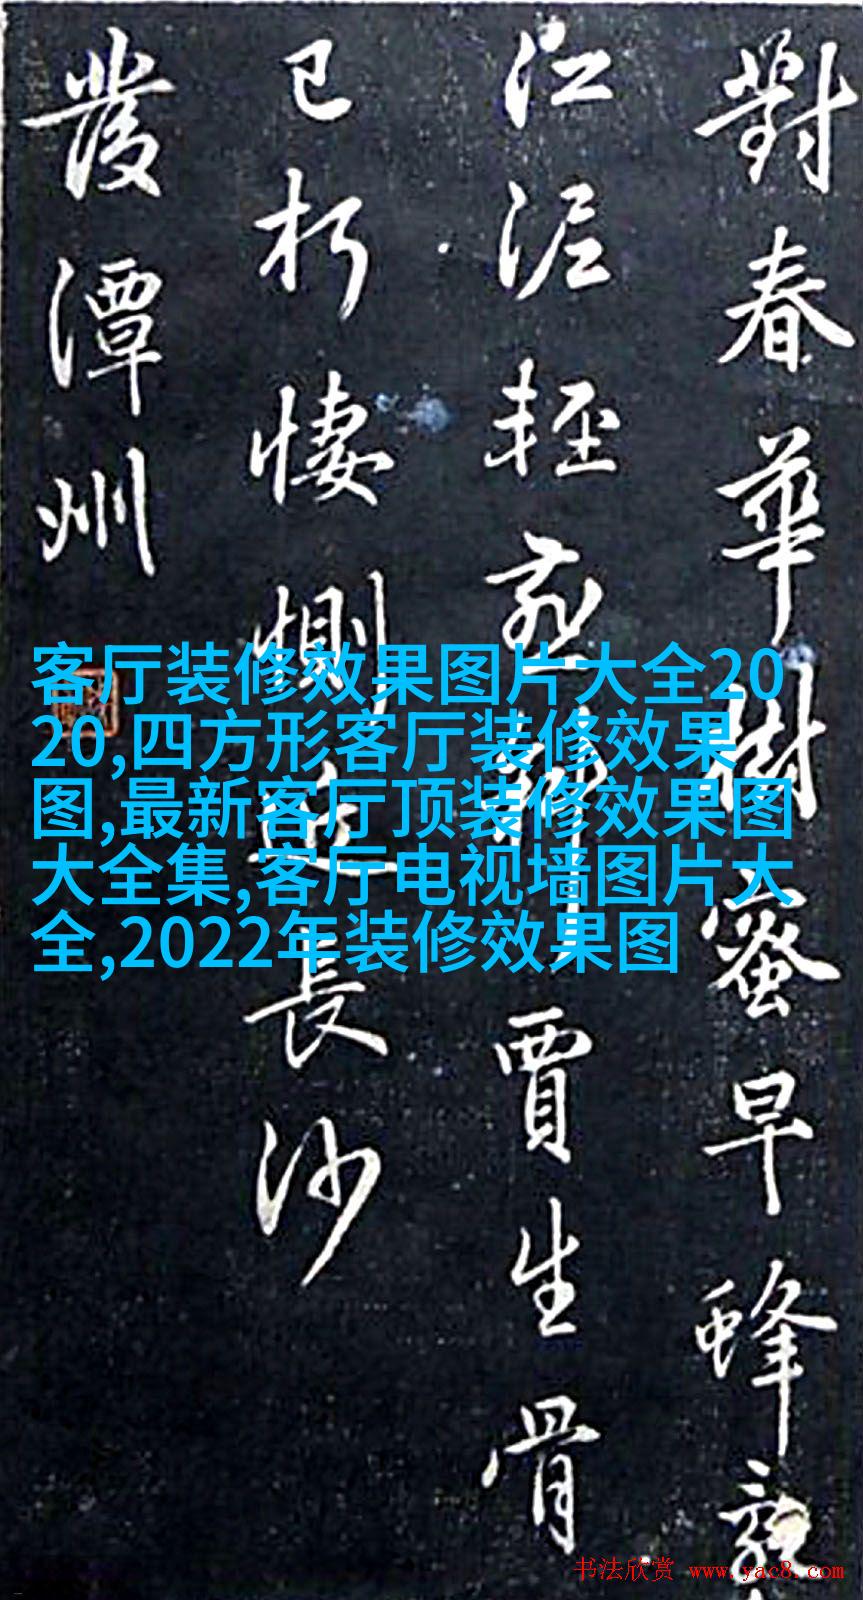 對春華樹蜜早蜂亂
江泥輕燕斜賈生骨
已朽悽惻近長沙
發潭州
客厅装修效果图片大全20
20,四方形客厅装修效果
图,最新客厅顶装修效果图
大全集,客厅电视墙图片大
全,2022年装修效果图
书法欣赏 www.yac8.com